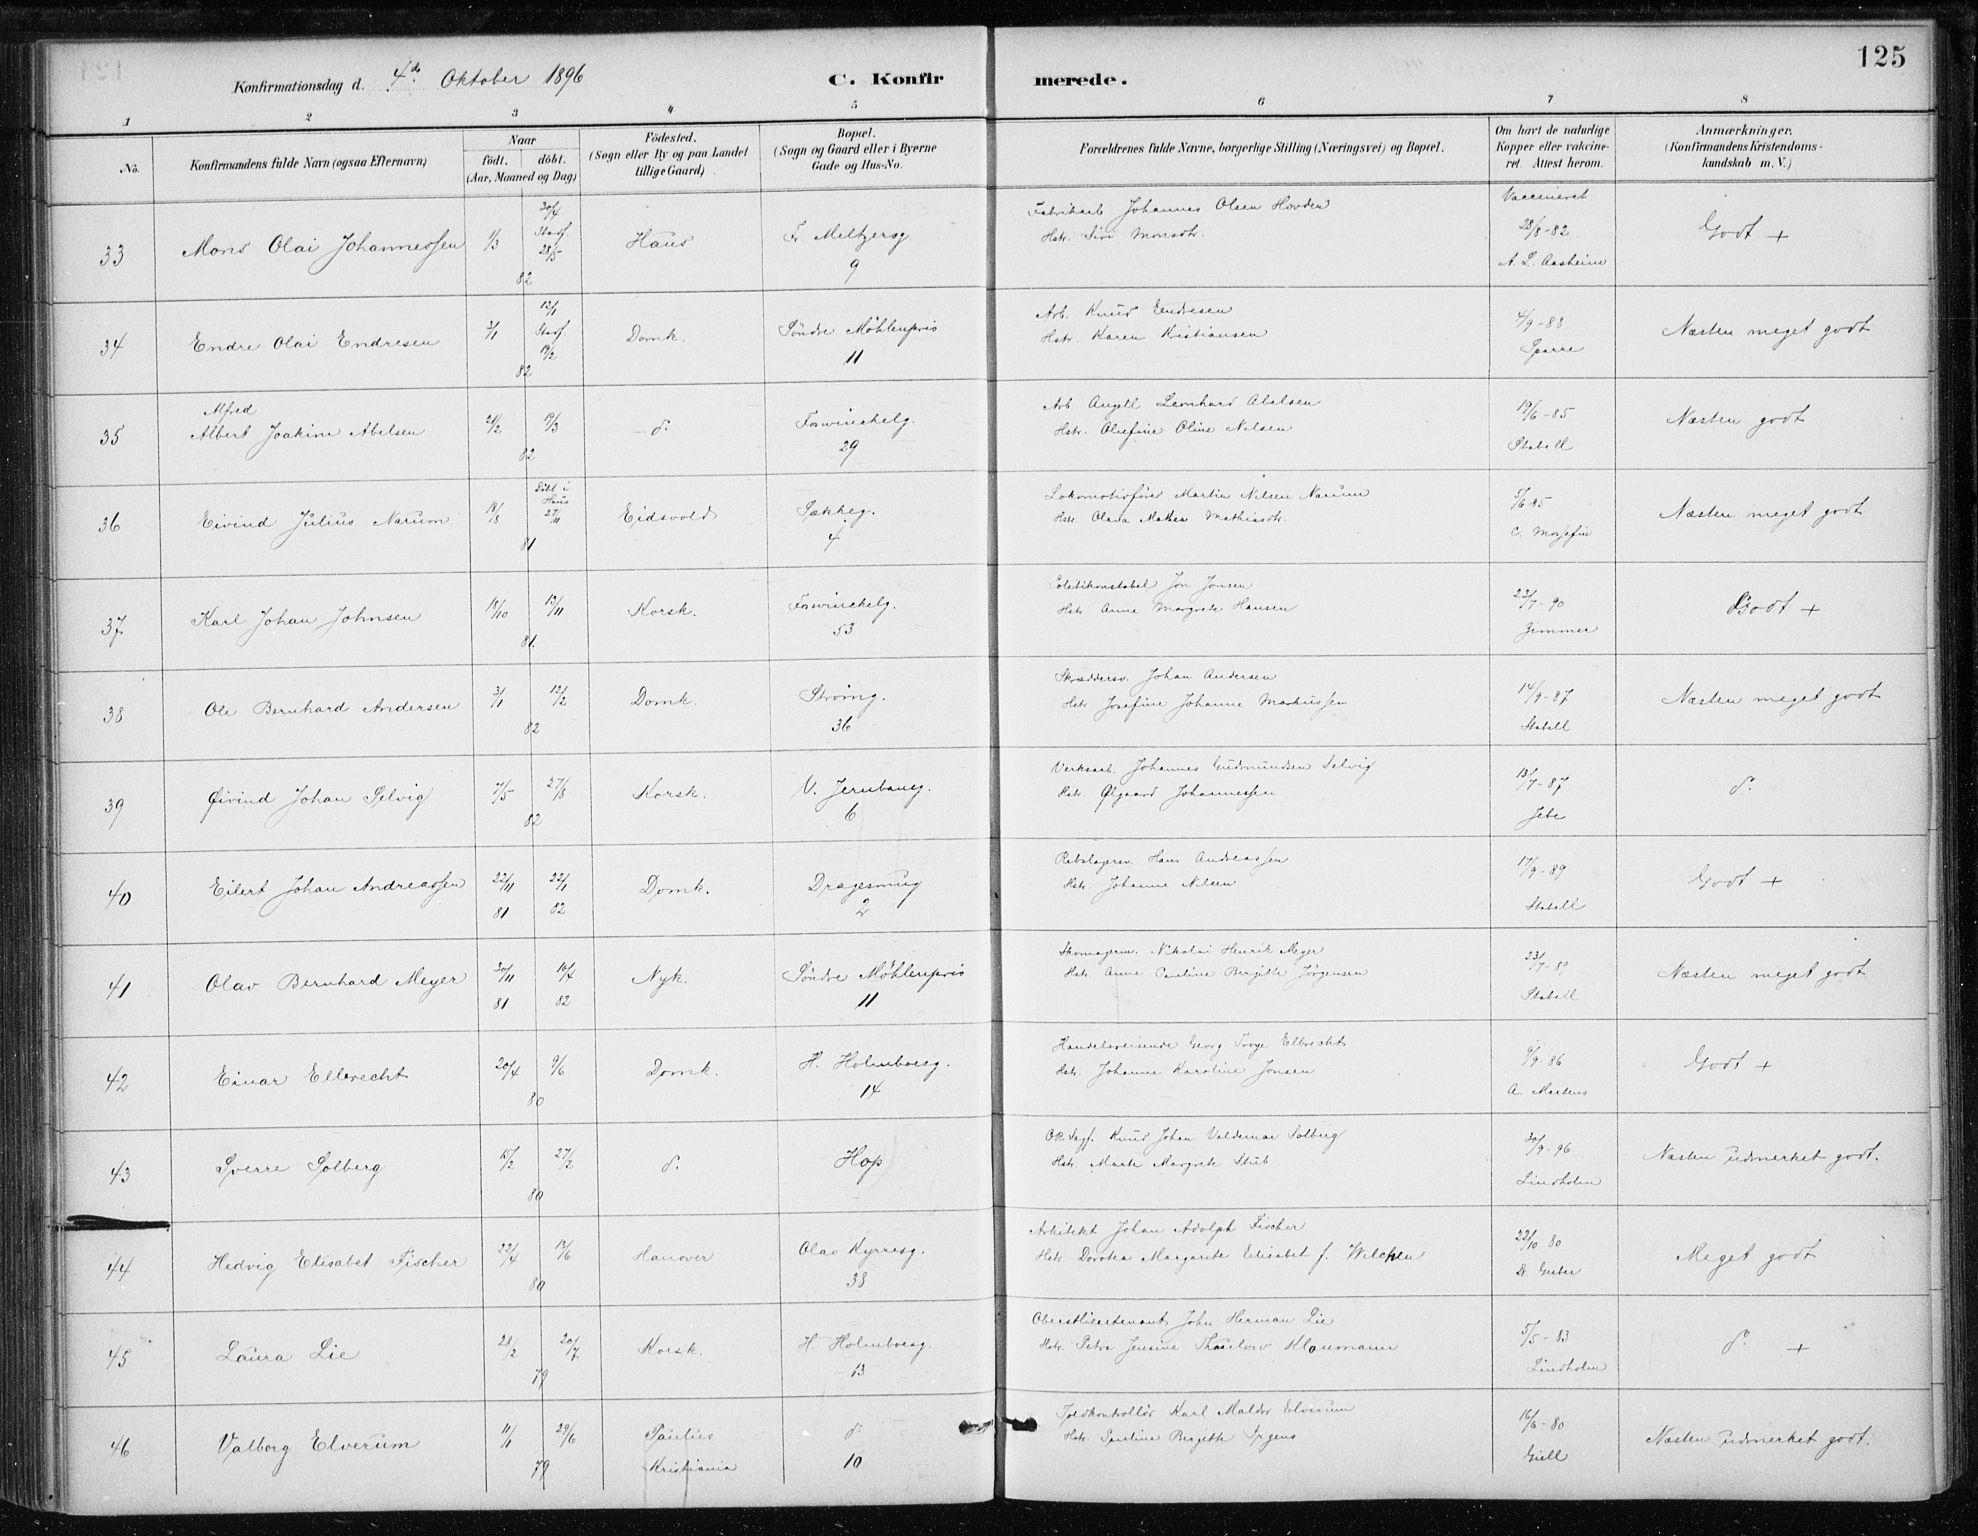 125
Konfirmationsdag d. 4de Oktober 1896
C. Konfirmerede.
1 2 3 4 5 6 7 8
No.
Konfirmandens fulde Navn (ogsaa Efternavn)
Naar
födt. döbt.
(Aar, Maaned og Dag)
Födested.
(Sogn eller By og paa Landet
tillige Gaard)
Bopæl.
(Sogn og Gaard eller i Byerne
Gade og Hus-No.
Forældrenes fulde Navne, borgerlige Stilling (Næringsvei) og Bopæl.
Om havt de naturlige
Kopper eller vakcine-
ret. Attest herom.
Anmærkninger.
(Konfirmandens Kristendoms-
kundskab m. V.)
33 Mons Olai Johannessen 1/3 30/4 Stadf. 28/5 82 Haus Fr. Meltzersg 9
Fabrikarb Johannes Olsen Hovden
Hstr. Siri Monsdtr.
Vaccineret 28/8-82 A. L. Aasheim
Godt +
34 Endre Olai Endresen 3/1 12/1 Stadf. 19/2 82 Domk. Söndre Möhlenpris 11
Arb. Knud Endresen
Hstr. Karen Kristiansen
4/9-88 Sparre
Næsten meget godt
35 Alfred
Albert Joakim Abelsen 21/2 19/3 82 d. Forvinckelg. 29
Arb Angell Leonhard Abelsen
Hstr. Olufine Oline Nilsen
19/6-85 Stabell
Næsten godt
36 Eivind Julius Narum 18/8 Döbt i Haus 27/11 81 Eidsvold Sækkeg. 4
Lokomotivförer Martin Nilsen Narum
Hstr. Olava Mathea Mathiasdtr.
5/6-85
Næsten meget godt
37 Karl Johan Johnsen 18/10 13/11 81 Korsk. Forvinckelg. 53
Politikonstabel Jon Jonsen
Hstr Anne Margrete Hansen
22/7-90 Zimmer
Godt +
38 Ole Bernhard Andersen 3/1 12/2 82 Domk. Strömg. 36
Skræddersv. Johan Andersen
Hstr Josefine Johanne Markussen
14/9-87 Stabell
Næsten meget godt
39 Øivind Johan Selvig 7/5 27/8 82 Korsk. V. Jernbaneg. 6
Verksarb. Johannes Gudmundsen Selvig
Hstr. Olgaard Johannessen
13/7-87 Jebe
d.
40 Eilert Johan Andreassen 22/11 81 22/1 82 Domk. Dragesmug 2
Rebslagersv. Hans Andreassen
Hstr. Johanne Nilsen
17/9-89 Stabell
Godt +
41 Olav Bernhard Meyer 30/11 81 16/4 82 Nyk. Söndre Möhlenpris 11
Skomagerm. Nikolai Henrik Meyer
Hstr. Anne Pauline Bergitte Jörgensen
Stabell
Næsten meget godt
42 Einar Ellbrecht 20/4 9/6 80 Domk. H. Holmboesg. 14
Handelsreisende Georg Ellbrecht
Hstr. Johanne Karoline Jonsen
9/9-86 A. Martens
Godt +
43 Sverre Solberg 15/2 27/2 80 d. Hop
O.R. Sagf. Knud Johan Valdemar Solberg
Hstr. Marte Margrete Stub
30/9-96 Lindholm
Næsten udmerket godt.
44 Hedvig Elisabet Fischer 22/4 13/6 80 Hanover Olav Kyrresg. 38
Arkitekt Johan Adolph Fischer
Hstr. Dorotea Margarete Elisabet f. Wilcken
22/10 80
Meget godt
45 Laura Lie 28/2 20/7 79 Korsk. H. Holmboesg. 13
Oberstlieutenant John Herman Lie
Hstr. Petra Jensine Thaulow Klaumann
5/5-83 Lindholm
d. +
46 Valborg Elverum 11/1 29/6 79 Paulus Kristiania d. 10
Toldkontrollör Karl Maldor Elverum
Hstr. Pauline Bergitte Irgens
16/6-80 Giell
Næsten udmerket godt.